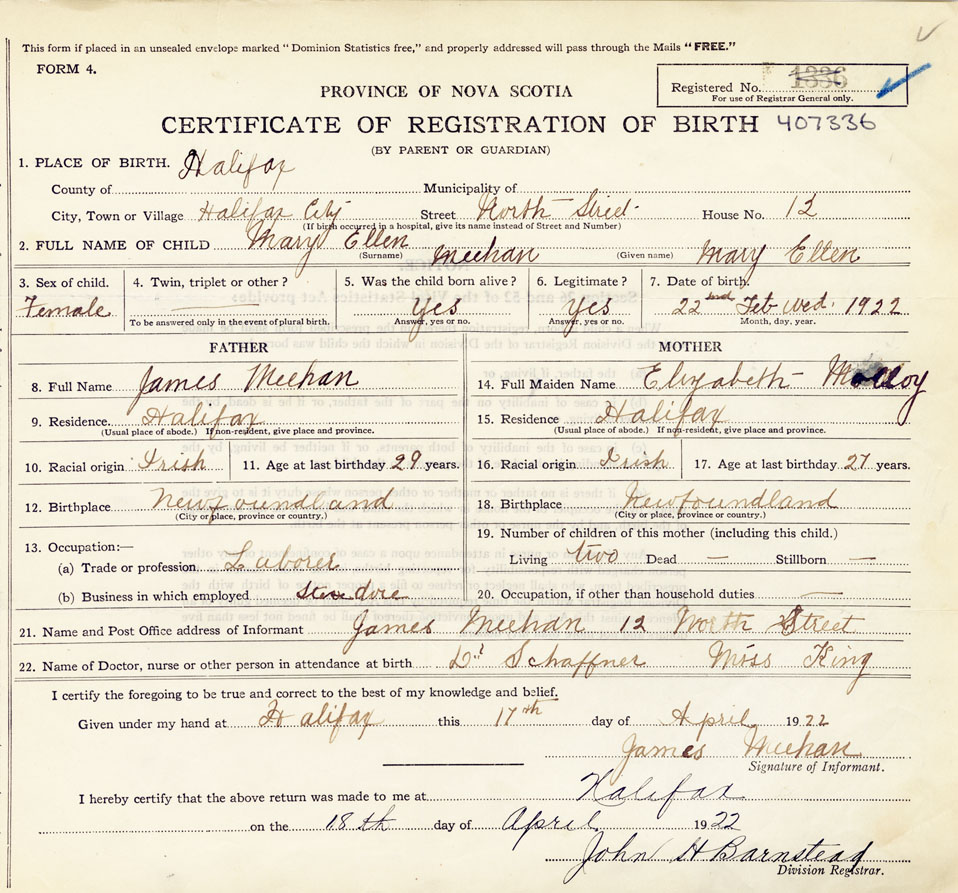 This form if placed in an unsealed envelope marked "Dominion Statistics free," and properly addressed will pass through the Mails "FREE."
FORM 4.
PROVINCE OF NOVA SCOTIA
Registered No. 1336
For use of Registrar General only.
CERTIFICATE OF REGISTRATION OF BIRTH 407336
(BY PARENT OR GUARDIAN)
1. PLACE OF BIRTH. Halifax
County of Municipality of
City, Town or Village Halifax City Street North Street House No. 12
(If birth occurred in a hospital, give its name instead of Street and Number)
2. FULL NAME OF CHILD Mary Ellen Meehan Mary Ellen
(Surname) (Given name)
3. Sex of child. 4. Twin, triplet or other? 5. Was the child born alive? 6. Legitimate? 7. Date of birth.
Female — Yes Yes 22nd Feb Wed. 1922
To be answered only in the event of plural birth. Answer, yes or no. Answer, yes or no. Month, day, year.
FATHER MOTHER
8. Full Name James Meehan 14. Full Maiden Name Elizabeth Molloy
9. Residence. Halifax 15. Residence Halifax
(Usual place of abode.) If non-resident, give place and province. (Usual place of abode.) If non-resident, give place and province.
10. Racial origin Irish 11. Age at last birthday 29 years. 16. Racial origin Irish 17. Age at last birthday 27 years.
12. Birthplace Newfoundland 18. Birthplace Newfoundland
(City or place, province or country.) (City or place, province or country.)
13. Occupation:— 19. Number of children of this mother (including this child.)
(a) Trade or profession Laborer Living two Dead — Stillborn —
(b) Business in which employed Stevedore 20. Occupation, if other than household duties —
21. Name and Post Office address of Informant James Meehan 12 North Street
22. Name of Doctor, nurse or other person in attendance at birth Dr Schaffner Miss King
I certify the foregoing to be true and correct to the best of my knowledge and belief.
Given under my hand at Halifax this 17th day of April 1922
James Meehan
Signature of Informant.
I hereby certify that the above return was made to me at Halifax
on the 18th day of April 1922
John H Barnstead
Division Registrar.